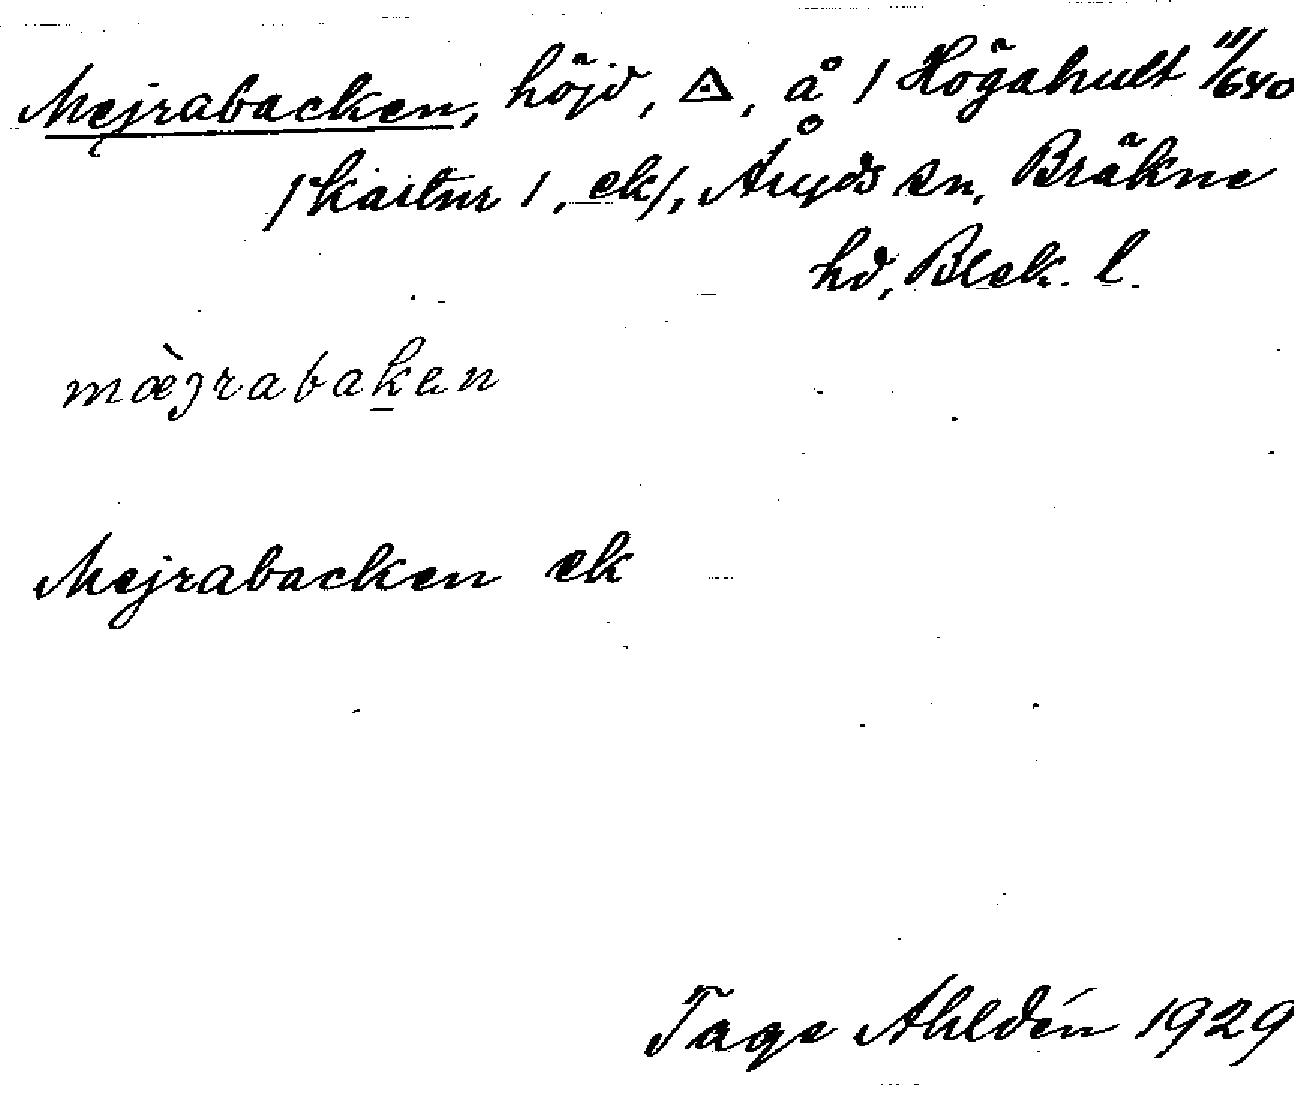 Mejrabacken, höjd, △, å / Högahult 11/640
/ kartnr 1, ek/, Åryds sn, Bräkne
hd, Blek. l.
mæ̀jrabaḵen
Mejrabacken ek
Tage Ahldén 1929